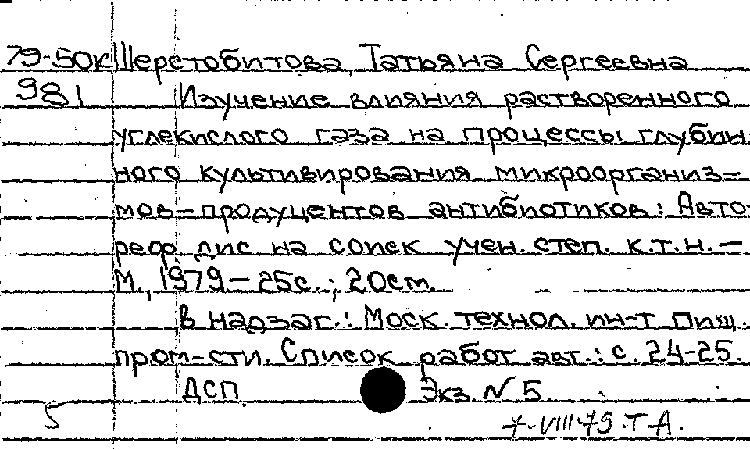 79-50к Шерстобитова, Татьяна Сергеевна
981 Изучение влияния растворенного
углекислого газа на процессы глубин
ного культивирования микроорганиз-
мов-продуцентов антибиотиков: Авто
реф. дис на соиск учен. степ. к.т.н. –
М., 1979 – 25с.; 20см.
В надзаг.: Моск. технол. ин-т пищ.
пром-сти. Список работ авт.: с. 24-25.
ДСП Экз. N 5
5 7-VIII-79. Т-А.